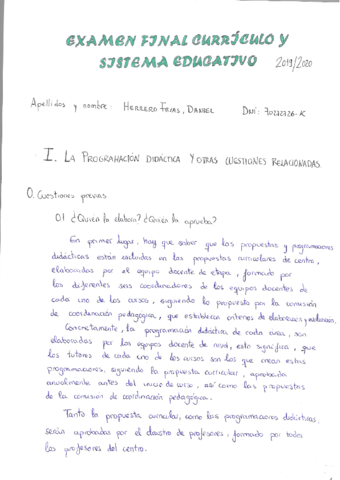 EXAMEN FINAL CURRÍCULO Y
SISTEMA EDUCATIVO 2019/2020
Apellidos y nombre: HERRERO FRÍAS, DANIEL DNI: 70272326-K
I. LA PROGRAMACIÓN DIDÁCTICA Y OTRAS CUESTIONES RELACIONADAS.
0. Cuestiones previas
0.1 ¿Quién la elabora? ¿Quién la aprueba?
En primer lugar, hay que saber que las propuestas y programaciones
didácticas están incluidas en las propuestas curriculares de centro,
elaboradas por el equipo docente de etapa, formado por
los diferentes seis coordinadores de los equipos docentes de
cada uno de los cursos, siguiendo la propuesta por la comisión
de coordinación pedagógica, que establecen criterios de elaboración y evaluación.
Concretamente, la programación didáctica de cada área, son
elaboradas por los equipos docente de nivel, esto significa, que
los tutores de cada uno de los cursos son los que crean estas
programaciones, siguiendo la propuesta curricular, aprobada
anualmente antes del inicio de curso, así como las propuestas
de la comisión de coordinación pedagógica.
Tanto la propuesta curricular, como las programaciones didácticas,
serán aprobadas por el claustro de profesores, formado por todos
los profesores del centro.